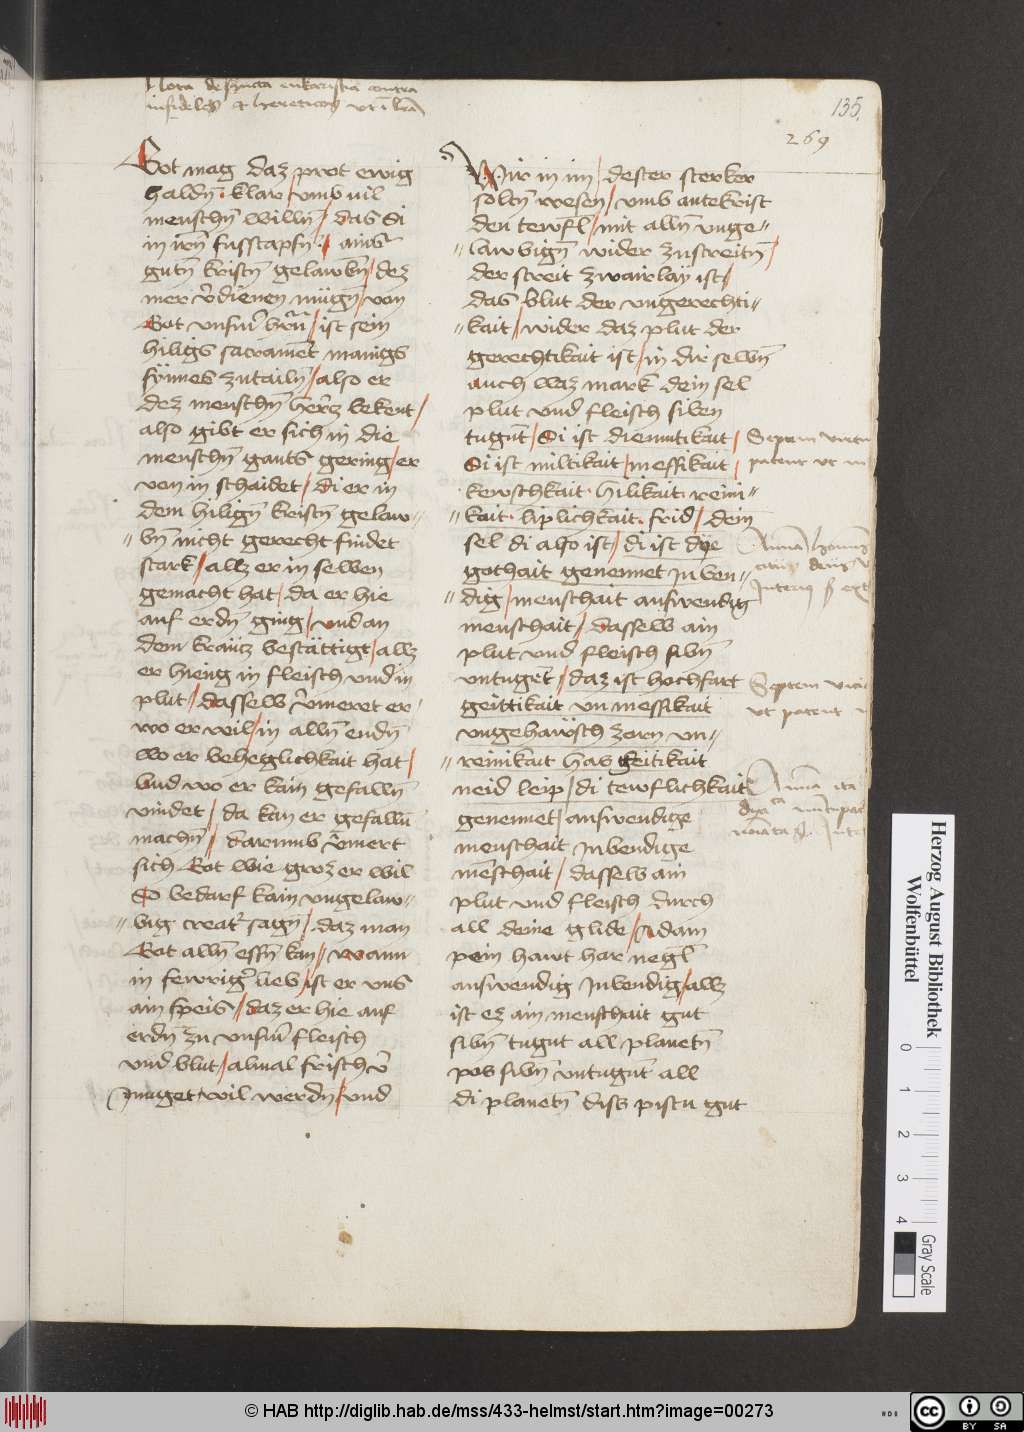 Nota de sancta eukaristia contra
infideles et hereticos
135.
269
Got mag daz prot ewig
haldn̄ · klar / vmb vil
menschn̄ willn̄ / das Si
in irn̄ fusstapfn̄ · ains
gutn̄ kristn̄ gelawbn̄ / dez
mer v̄dienen mügn̄ / von
Got vnsm̄ hrn̄ / ist sein
hiligs sacramēt manigs
synnes zutailn̄ / also er
dez menschn̄ hercz bekent /
also gibt er sich in die
menschn̄ gants gering / er
von in schaidet / di er in
dem hilign̄ kristn̄ gelaw〃
〃bn̄ nicht gerecht findet
stark / allz er in selben
gemacht hat / da er hie
auf erdn̄ ging / vnd an
dem kräutz bestättigt / allz
er hieng in fleisch vnd in
plut / dasselb v̄meret er /
wo er wil / in alln̄ endn̄
wo er beheglichkait hat /
vnd wo er kain gefalln̄
vindet / da kan er gefalln̄
machn̄ / darumb v̄mert
sich Got wie groz er wil
So bedarf kain vngelaw〃
〃big creatr̄ sagn̄ / daz man
Got alln̄ essn̄ kan / wann
in fewriger lieb / ist er vns
ain speis / daz er hie auf
erdn̄ zu vnsm̄ fleisch
vnd blut / almal frisch v̄
Junget / wil werdn̄ / vnd
Wir in im / dester sterker
soltn̄ wesen / vmb antekrist
den tewfl / mit alln̄ vnge〃
〃lawbign̄ wider zustreitn̄ /
der streit zwairlay ist /
das blut der vngerechti〃
〃kait / wider daz plut der
gerechtikait ist / in dir selbn̄
auch waz mark dein sel
plut vnd fleisch siben
tugnt / Si ist diemutikait /
Si ist miltikait / messikait /
kewschkait · hilikait · reini〃
〃kait · liplichkait · frid / dein
sel di also ist / di ist dye
gothait genennet Inben〃
〃dig / menschait auswendig
menschait / dasselb ain
plut vnd fleisch sibn̄
vntugēt / daz ist hochfart
geittikait vn messikait
vngehawsch zorn vn〃
〃reinikait has geitikait
neid leip / di tewflichkait
genennet / auswendige
menschait Inbendige
mēschait / dasselb ain
plut vnd fleisch durch
all deine glide / Adam
pein hawt har negl̄
auswendig Inbendig / allz
ist ez ain menschait gut
sibn̄ tugnt all planetn̄
pos sibn̄ vntugnt all
di planetn̄ diss pistu gut
Septem virtu
patent vt in
Septem vici
vt patent
Herzog August Bibliothek
Wolfenbüttel
0
1
2
3
4
Gray Scale
© HAB http://diglib.hab.de/mss/433-helmst/start.htm?image=00273
cc BY SA